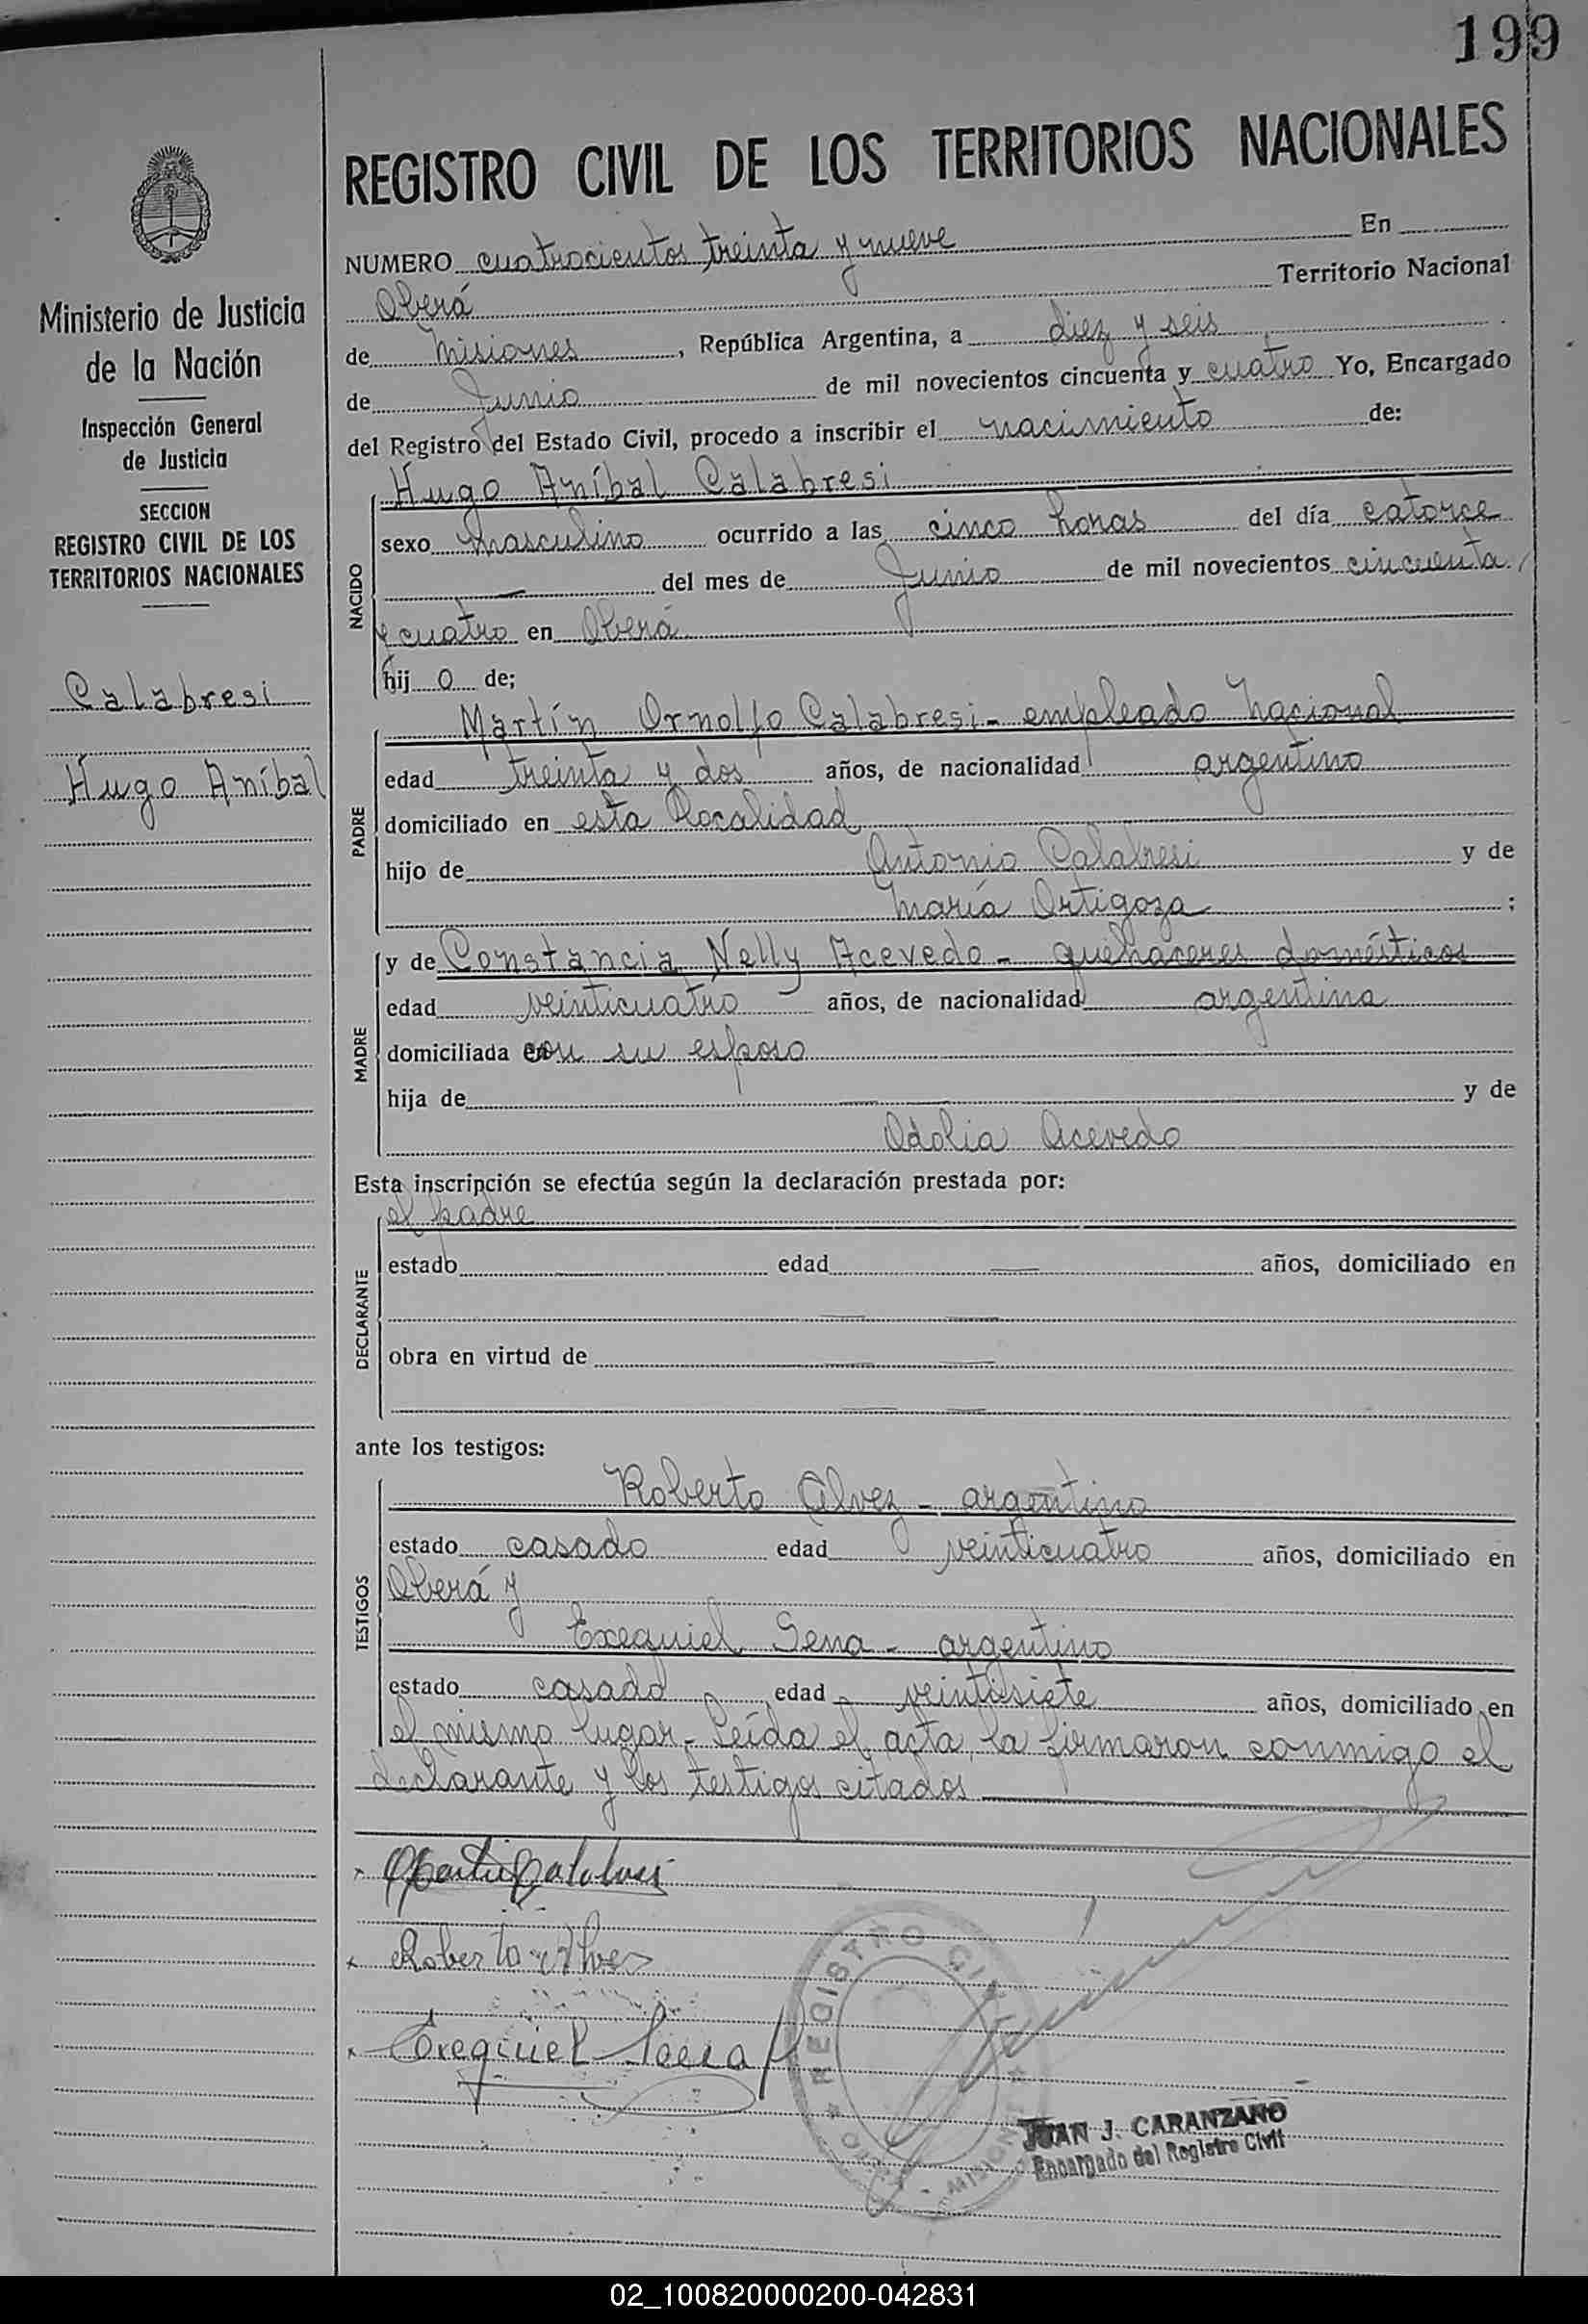 199
REGISTRO CIVIL DE LOS TERRITORIOS NACIONALES
Ministerio de Justicia
de la Nación
Inspección General
de Justicia
SECCION
REGISTRO CIVIL DE LOS
TERRITORIOS NACIONALES
Calabresi
Hugo Aníbal
NUMERO cuatrocientos treinta y nueve En
Oberá Territorio Nacional
de Misiones, República Argentina, a diez y seis
de Junio de mil novecientos cincuenta y cuatro Yo, Encargado
del Registro del Estado Civil, procedo a inscribir el nacimiento de:
NACIDO
Hugo Aníbal Calabresi
sexo masculino ocurrido a las cinco horas del día catorce
del mes de Junio de mil novecientos cincuenta
y cuatro en Oberá
hij o de;
PADRE
Martín Ornolfo Calabresi - empleado Nacional
edad treinta y dos años, de nacionalidad argentino
domiciliado en esta localidad
hijo de Antonio Calabresi y de
María Ortigoza ;
MADRE
y de Constancia Nelly Acevedo - quehaceres domésticos
edad veinticuatro años, de nacionalidad argentina
domiciliada en con su esposo
hija de y de
Odolia Acevedo
Esta inscripción se efectúa según la declaración prestada por:
DECLARANTE
el padre
estado edad años, domiciliado en
obra en virtud de
ante los testigos:
TESTIGOS
Roberto Alvez - argentino
estado casado edad veinticuatro años, domiciliado en
Oberá y
Exequiel Sena - argentino
estado casado edad veintisiete años, domiciliado en
el mismo lugar - Leída el acta, la firmaron conmigo el
declarante y los testigos citados
Roberto Alves
Exequiel Sena
REGISTRO CIVIL
MISIONES
JUAN J. CARANZANO
Encargado del Registro Civil
02_100820000200-042831